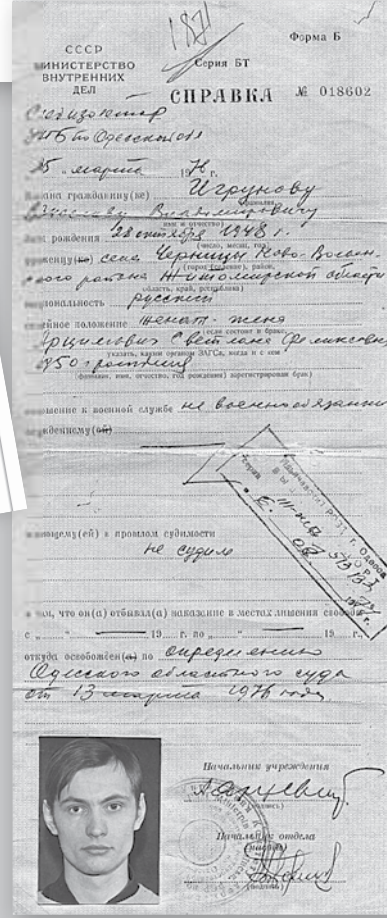 1871
Форма Б
СССР
МИНИСТЕРСТВО
ВНУТРЕННИХ
ДЕЛ
Серия БТ
СПРАВКА № 018602
Следизолятор
по Одесской обл
25 „ марта 1976 г.
Выдана гражданину(ке) Игрунову
фамилия
Вячеславу Владимировичу
имя и отчество)
рождения 28 октября 1948 г.
(число, месяц, год)
уроженцу(ке) села Черницы Ново-
(город (селение), район,
ского района Житомирской области
область, край, республика)
национальность русский
семейное положение женат - жена
(если состоит в браке,
Арцимович Светлана Феликсовна
указать, каким органом ЗАГСа, когда и с кем
1950 г рождения
(фамилия, имя, отчество, год рождения) зарегистрирован брак)
отношение к военной службе не военнообязанный
осужденному(ой)
имеющему(ей) в прошлом судимости
не судим
в том, что он(а) отбывал(а) наказание в местах лишения свободы
с „ “ 19 г. по „ “ 19 г.
откуда освобождён(а) по определению
Одесского областного суда
от 13 марта 1976 года
Начальник учреждения
(подпись)
Начальник отдела
(части)
(подпись)